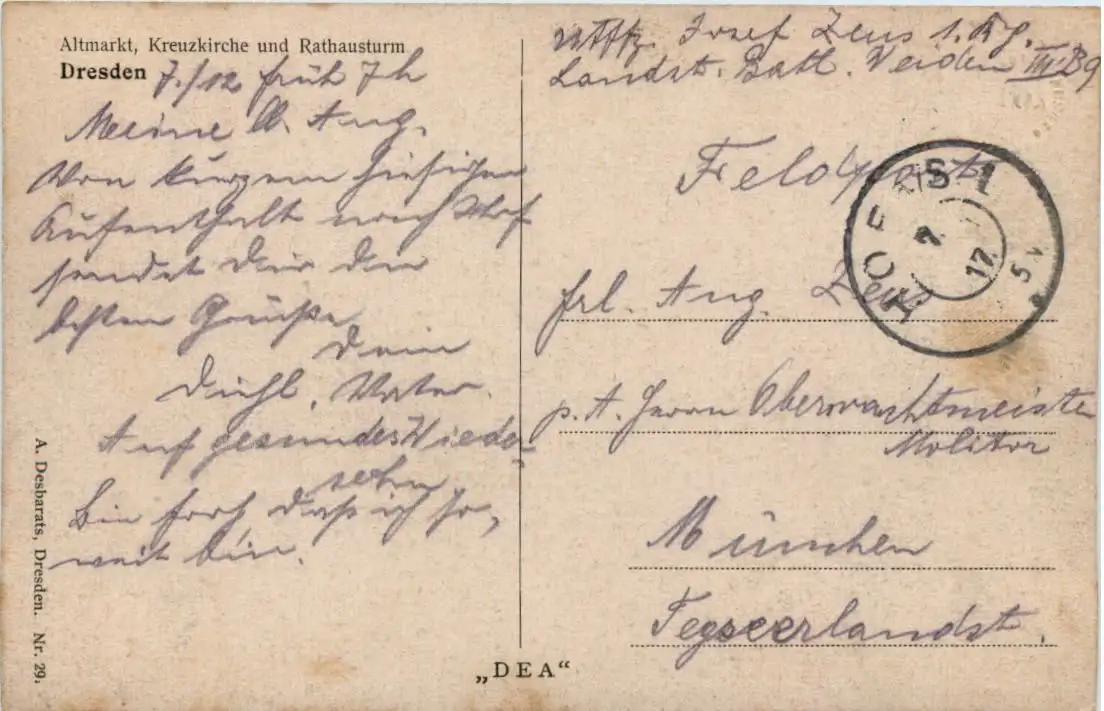 Altmarkt, Kreuzkirche und Rathausturm
Dresden
7./12 früh 7h
Meine lb. Aug.
Von kurzem hiesigen
Aufenthalt nach Hof
sendet Dir die
besten Grüße
Dein
Vater.
Auf gesundes Wieder
sehn
Bin froh, daß ich so
weit bin.
A. Desbarats, Dresden. Nr. 29.
„DEA“
Josef Zeus 1. K.
Landst. Batl. Weiden III B 9
Feldpost
HOF 1
7
17
5
Frl. Aug. Zeus
p. A. Herrn Oberwachtmeister
Molitor
München
Tegseerlandst.